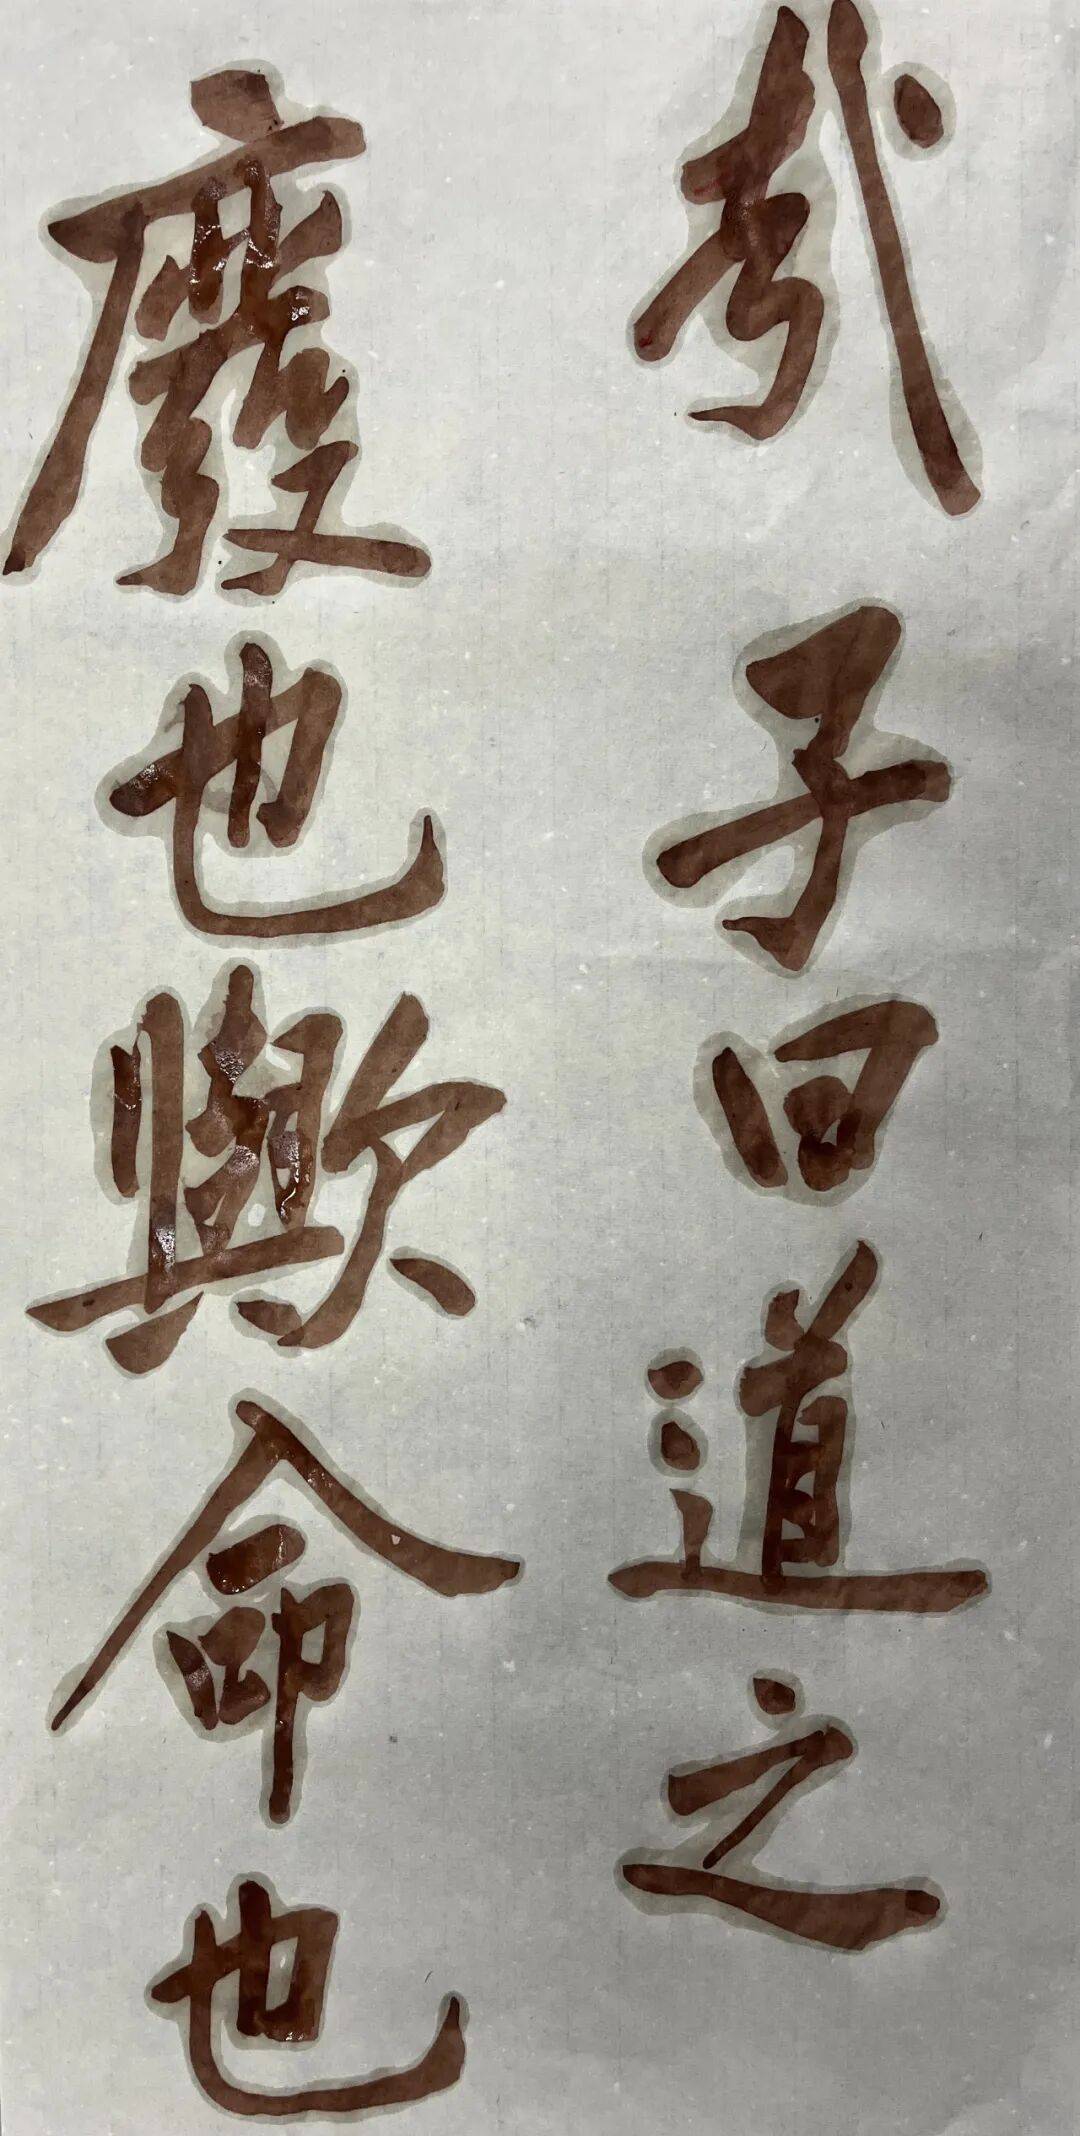 哉子曰道之
廢也歟命也